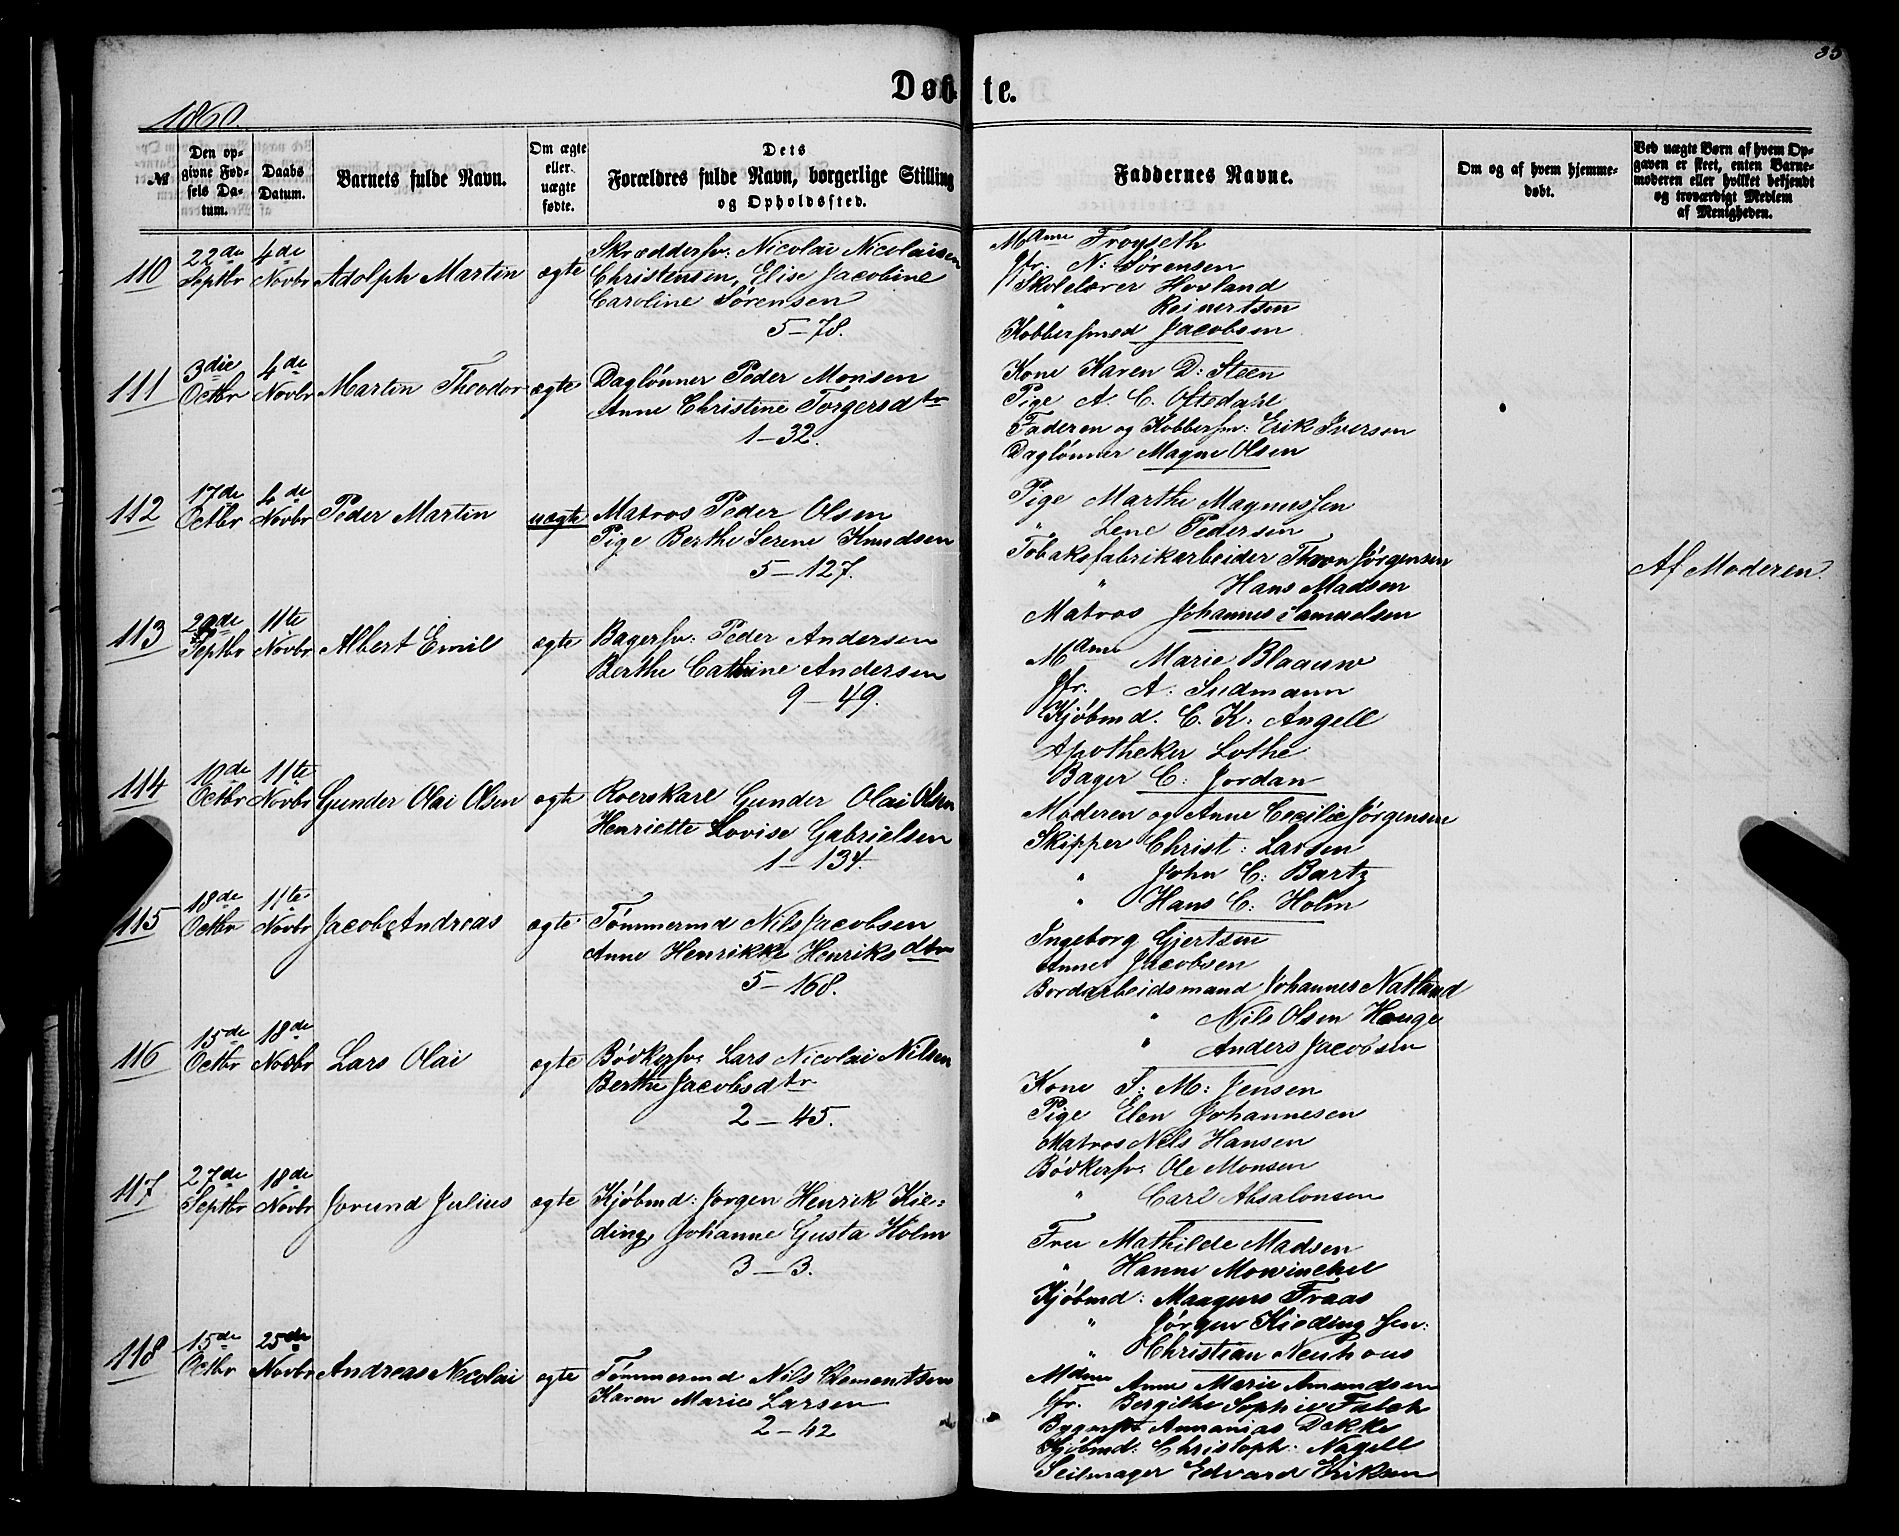 35
Døbte.
1860.
№
Den opgivne Fødsels Datum.
Daabs Datum.
Barnets fulde Navn.
Om ægte eller uægte fødte.
Dets Forældres fulde Navn, borgerlige Stilling og Opholdssted.
Faddernes Navne.
Om og af hvem hjemmedøbt.
Ved uægte Børn af hvem Opgaven er skeet, enten Barnemoderen eller hvilket bekjendt og troværdigt Medlem af Menigheden.
110 22de Septbr 4de Novbr Adolph Martin ægte
Skrædersv: Nicolai Nicolaisen
Christensen, Elise Jacobine
Caroline Sørensen
5-78.
Mdme Frøyseth
Jfr. N: Sørensen
Skolelærer Hovland
" Reinertsen
Kobbersmed Jacobsen
111 3die Octbr 4de Novbr Martin Theodor ægte
Daglønner Peder Monsen
Anne Christine Torgersdtr
1-32.
Kone Karen D: Steen
Pige A. C. Oftedahl
Faderen og Kobbersm: Erik Iversen
Daglønner Magne Olsen
112 17de Octbr 4de Novbr Peder Martin uægte
Matros Peder Olsen
Pige Berthe Serene Knudsen
5-127.
Pige Marthe Magnussen
" Lene Pedersen
Tobaksfabrikarbeider Thron Jørgensen
" Hans Madsen
Matros Johannes Samuelsen
Af Moderen.
113 29de Septbr 11te Novbr Albert Emil ægte
Bagersv: Peder Andersen
Berthe Cathrine Andersen
9-49.
Mdme Marie Blaauw
Jfr. A: Sudmann
Kjøbmd. C. K. Angell
Apotheker Lothe
Bager C: Jordan
114 10de Octbr 11te Novbr Gunder Olai Olsen ægte
Roerskarl Gunder Olai Olsen
Henriette Lovise Gabrielsen
1-134.
Moderen og Anne Cecilie Jørgensen
Skipper Christ: Larsen
" John C: Bartz
" Hans C: Holm
115 18de Octbr 11te Novbr Jacob Andreas ægte
Tømmermd Nils Jacobsen
Anne Henrikke Henriksdtr
5-168.
Ingeborg Gjertsen
Anne Jacobsen
Bordarbeidsmand Johannes Natland
" Nils Olsen Houge
" Anders Jacobsen
116 15de Octbr 18de Novbr Lars Olai ægte
Bødkersv: Lars Nicolai Nilsen
Berthe Jacobsdtr
2-45.
Kone T: M: Jensen
Pige Elen Johannesen
Matros Nils Hansen
Bødkersv: Ole Monsen
" Carl Absalonsen
117 27de Septbr 18de Novbr Jorund Julius ægte
Kjøbmd: Jørgen Henrik Kie-
ding, Johanne Gusta Holm
3-3.
Fru Mathilde Madsen
" Hanne Mowinckel
Kjøbmd: Maagens Traas
" Jørgen Kieding Sen:
" Christian Neuhaus
118 15de Octbr 25de Novbr Andreas Nicolai ægte
Tømmermd Nils Clementsen
Karen Marie Larsen
2-42
Mdme Anne Marie Amundsen
Jfr. Bergithe Sophie Falch
Bygmst Annanias Dekke
Kjøbmd: Christoph: Nagell
Seilmager Edvard Eriksen